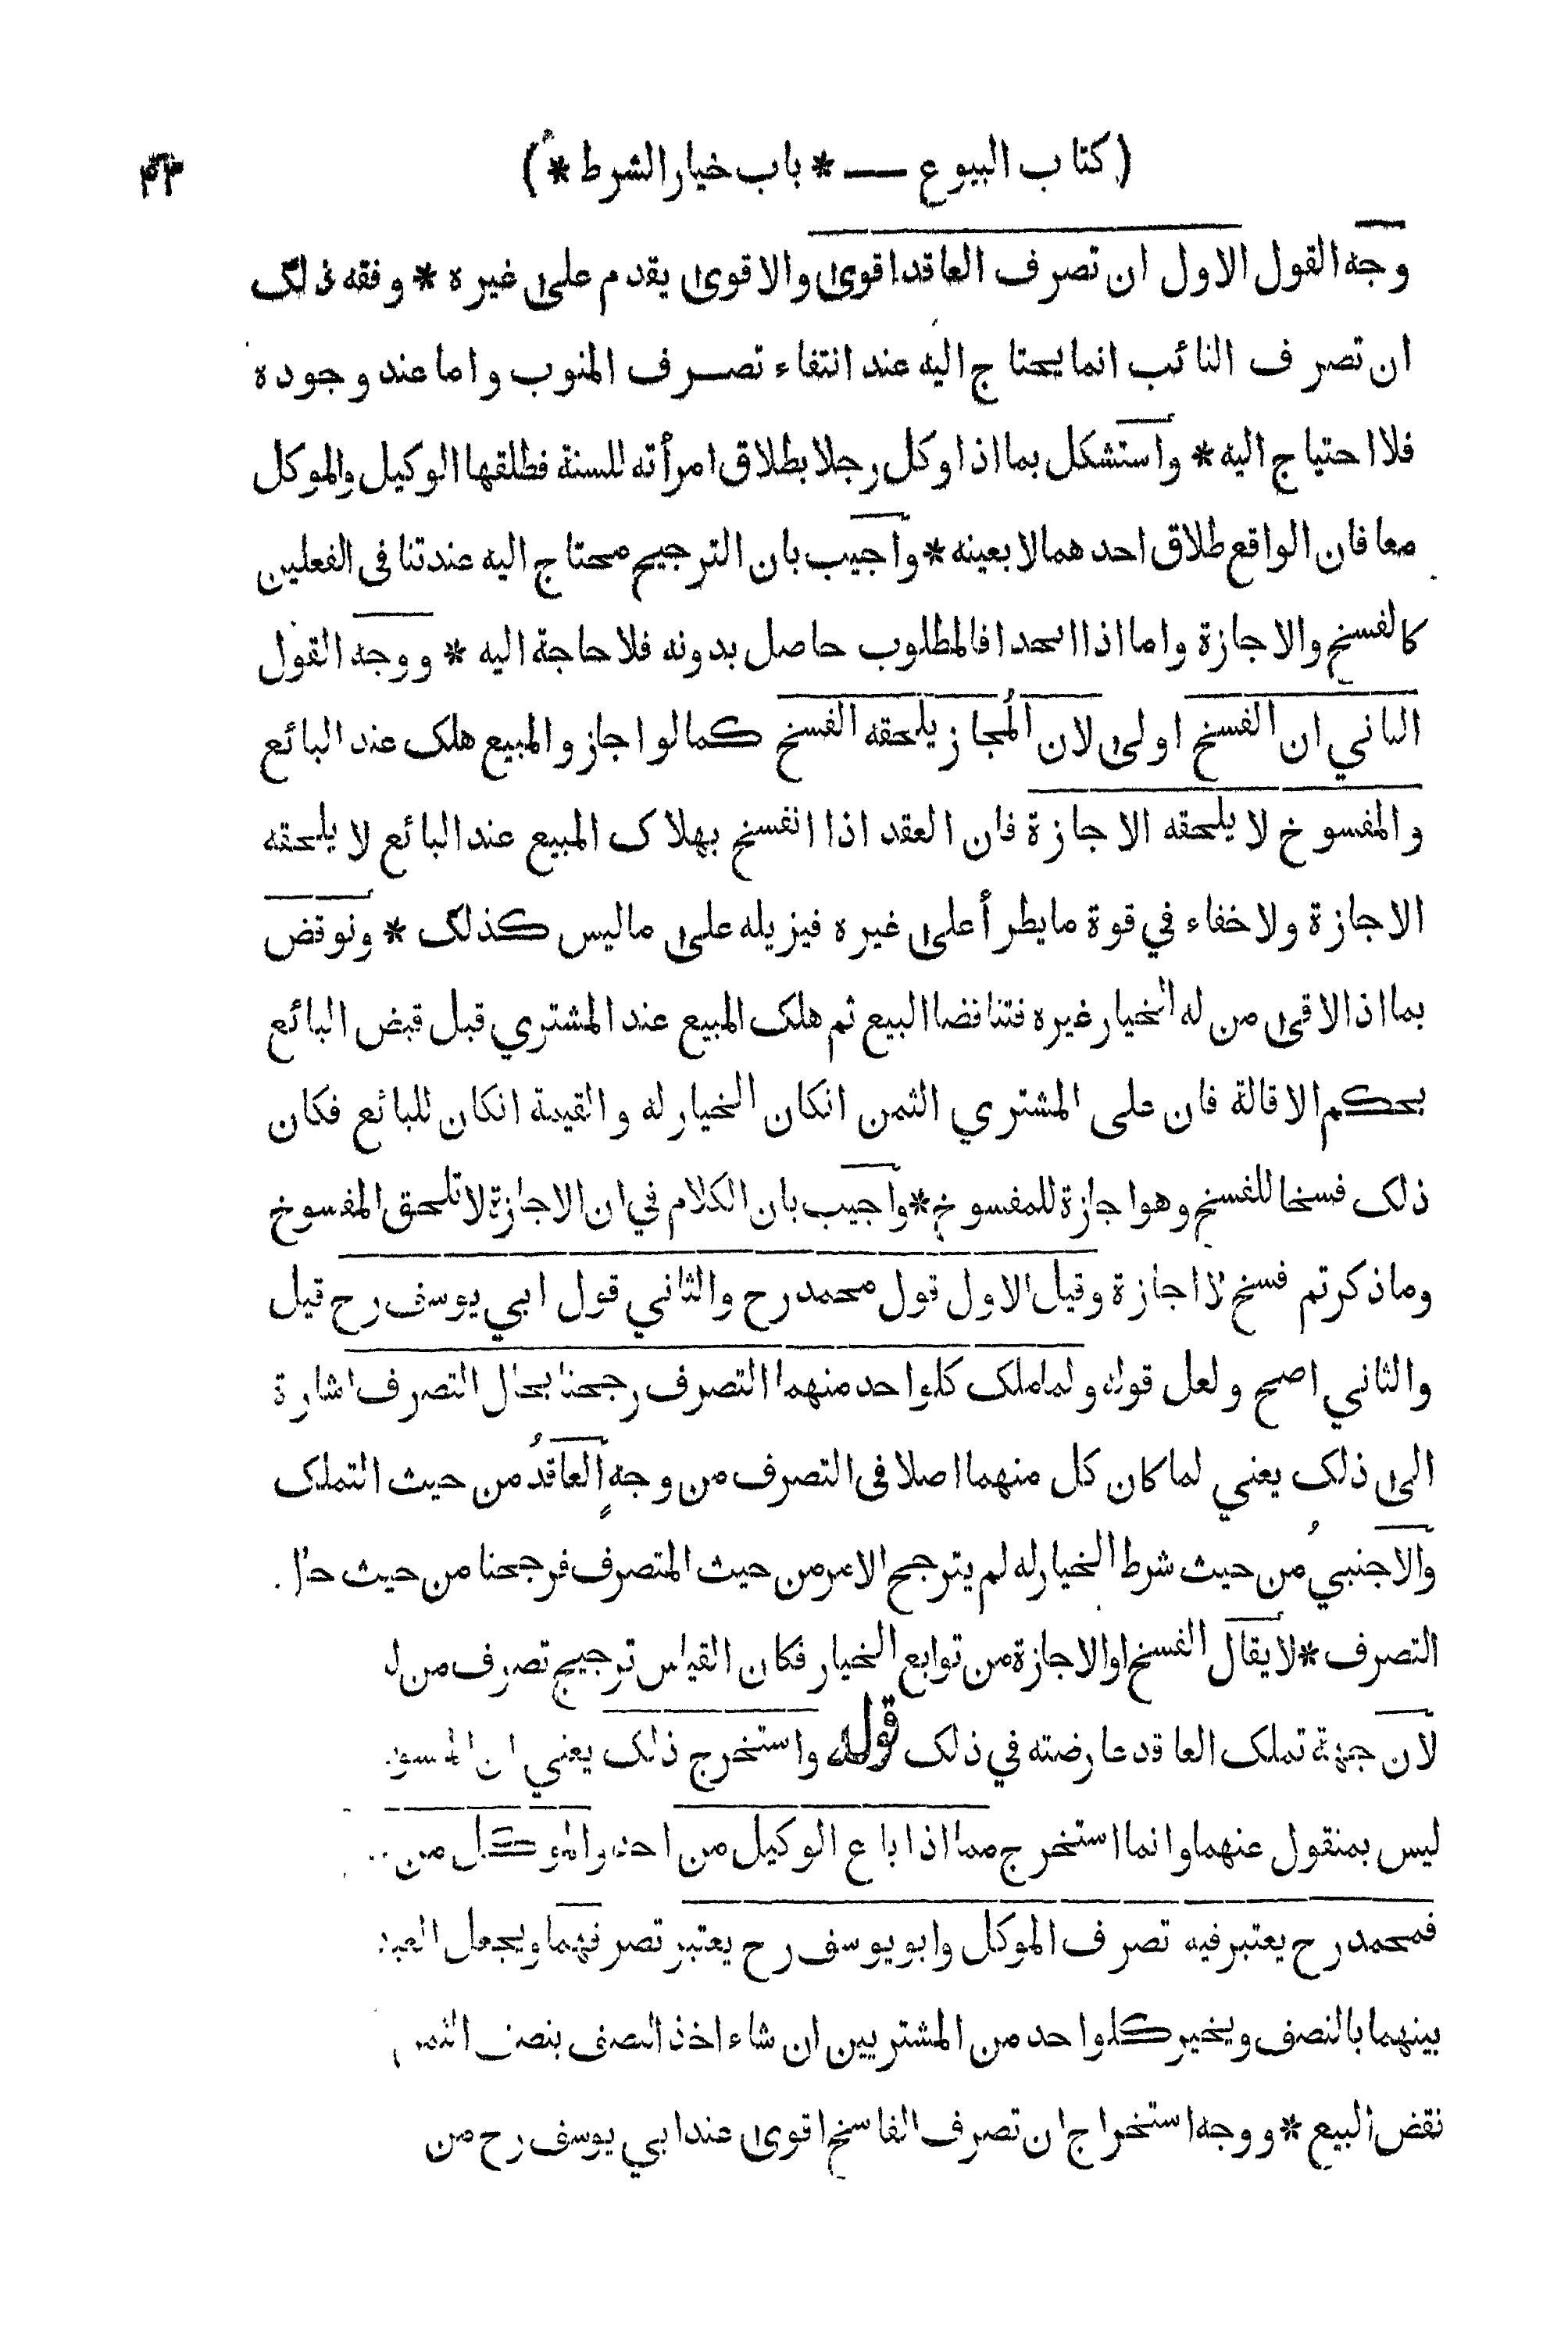 ( كتاب البيوع — * باب خيار الشرط * )
٤٣
وجه القول الاول ان تصرف العاقد اقوى والاقوى يقدم على غيره * وفقه ذلك
ان تصرف النائب انما يحتاج اليه عند انتفاء تصرف المنوب واما عند وجوده
فلا احتياج اليه * واستشكل بما اذا وكل رجلا بطلاق امرأته للسنة فطلقها الوكيل والموكل
معا فان الواقع طلاق احدهما لا بعينه * واجيب بان الترجيح محتاج اليه عند تنافى الفعلين
كالفسخ والاجازة واما اذا اتحدا فالمطلوب حاصل بدونه فلا حاجة اليه * ووجه القول
الثاني ان الفسخ اولى لان المُجاز يلحقه الفسخ كما لو اجاز والمبيع هلك عند البائع
والمفسوخ لا يلحقه الاجازة فان العقد اذا انفسخ بهلاك المبيع عند البائع لا يلحقه
الاجازة ولا خفاء في قوة ما يطرأ على غيره فيزيله على ما ليس كذلك * ونوقض
بما اذا لاقى من له الخيار غيره فتناقضا البيع ثم هلك المبيع عند المشتري قبل قبض البائع
بحكم الاقالة فان على المشتري الثمن انكان الخيار له والقيمة انكان للبائع فكان
ذلك فسخا للفسخ وهو اجازة للمفسوخ * واجيب بان الكلام في ان الاجازة لا تلحق المفسوخ
وما ذكرتم فسخ لا اجازة وقيل الاول قول محمد رح والثاني قول ابي يوسف رح قيل
والثاني اصح ولعل قوله ولما ملك كل واحد منهما التصرف رجحنا بحال التصرف اشارة
الى ذلك يعني لما كان كل منهما اصلا فى التصرف من وجهٍ العاقدُ من حيث التملك
والاجنبيُ من حيث شرط الخيار له لم يترجح الامر من حيث المتصرف فرجحنا من حيث حال
التصرف * لا يقال الفسخ او الاجازة من توابع الخيار فكان القياس ترجيح تصرف من
لان جهة تملك العاقد عارضته في ذلك قوله واستخرج ذلك يعني ان
ليس بمنقول عنهما وانما استخرج مما اذا باع الوكيل من احد والموكل من
فمحمد رح يعتبر فيه تصرف الموكل وابو يوسف رح يعتبر تصرفهما ويجعل العبد
بينهما بالنصف ويخير كل واحد من المشتريين ان شاء اخذ النصف بنصف الثمن
نقض البيع * ووجه استخراج ان تصرف الفاسخ اقوى عند ابي يوسف رح من